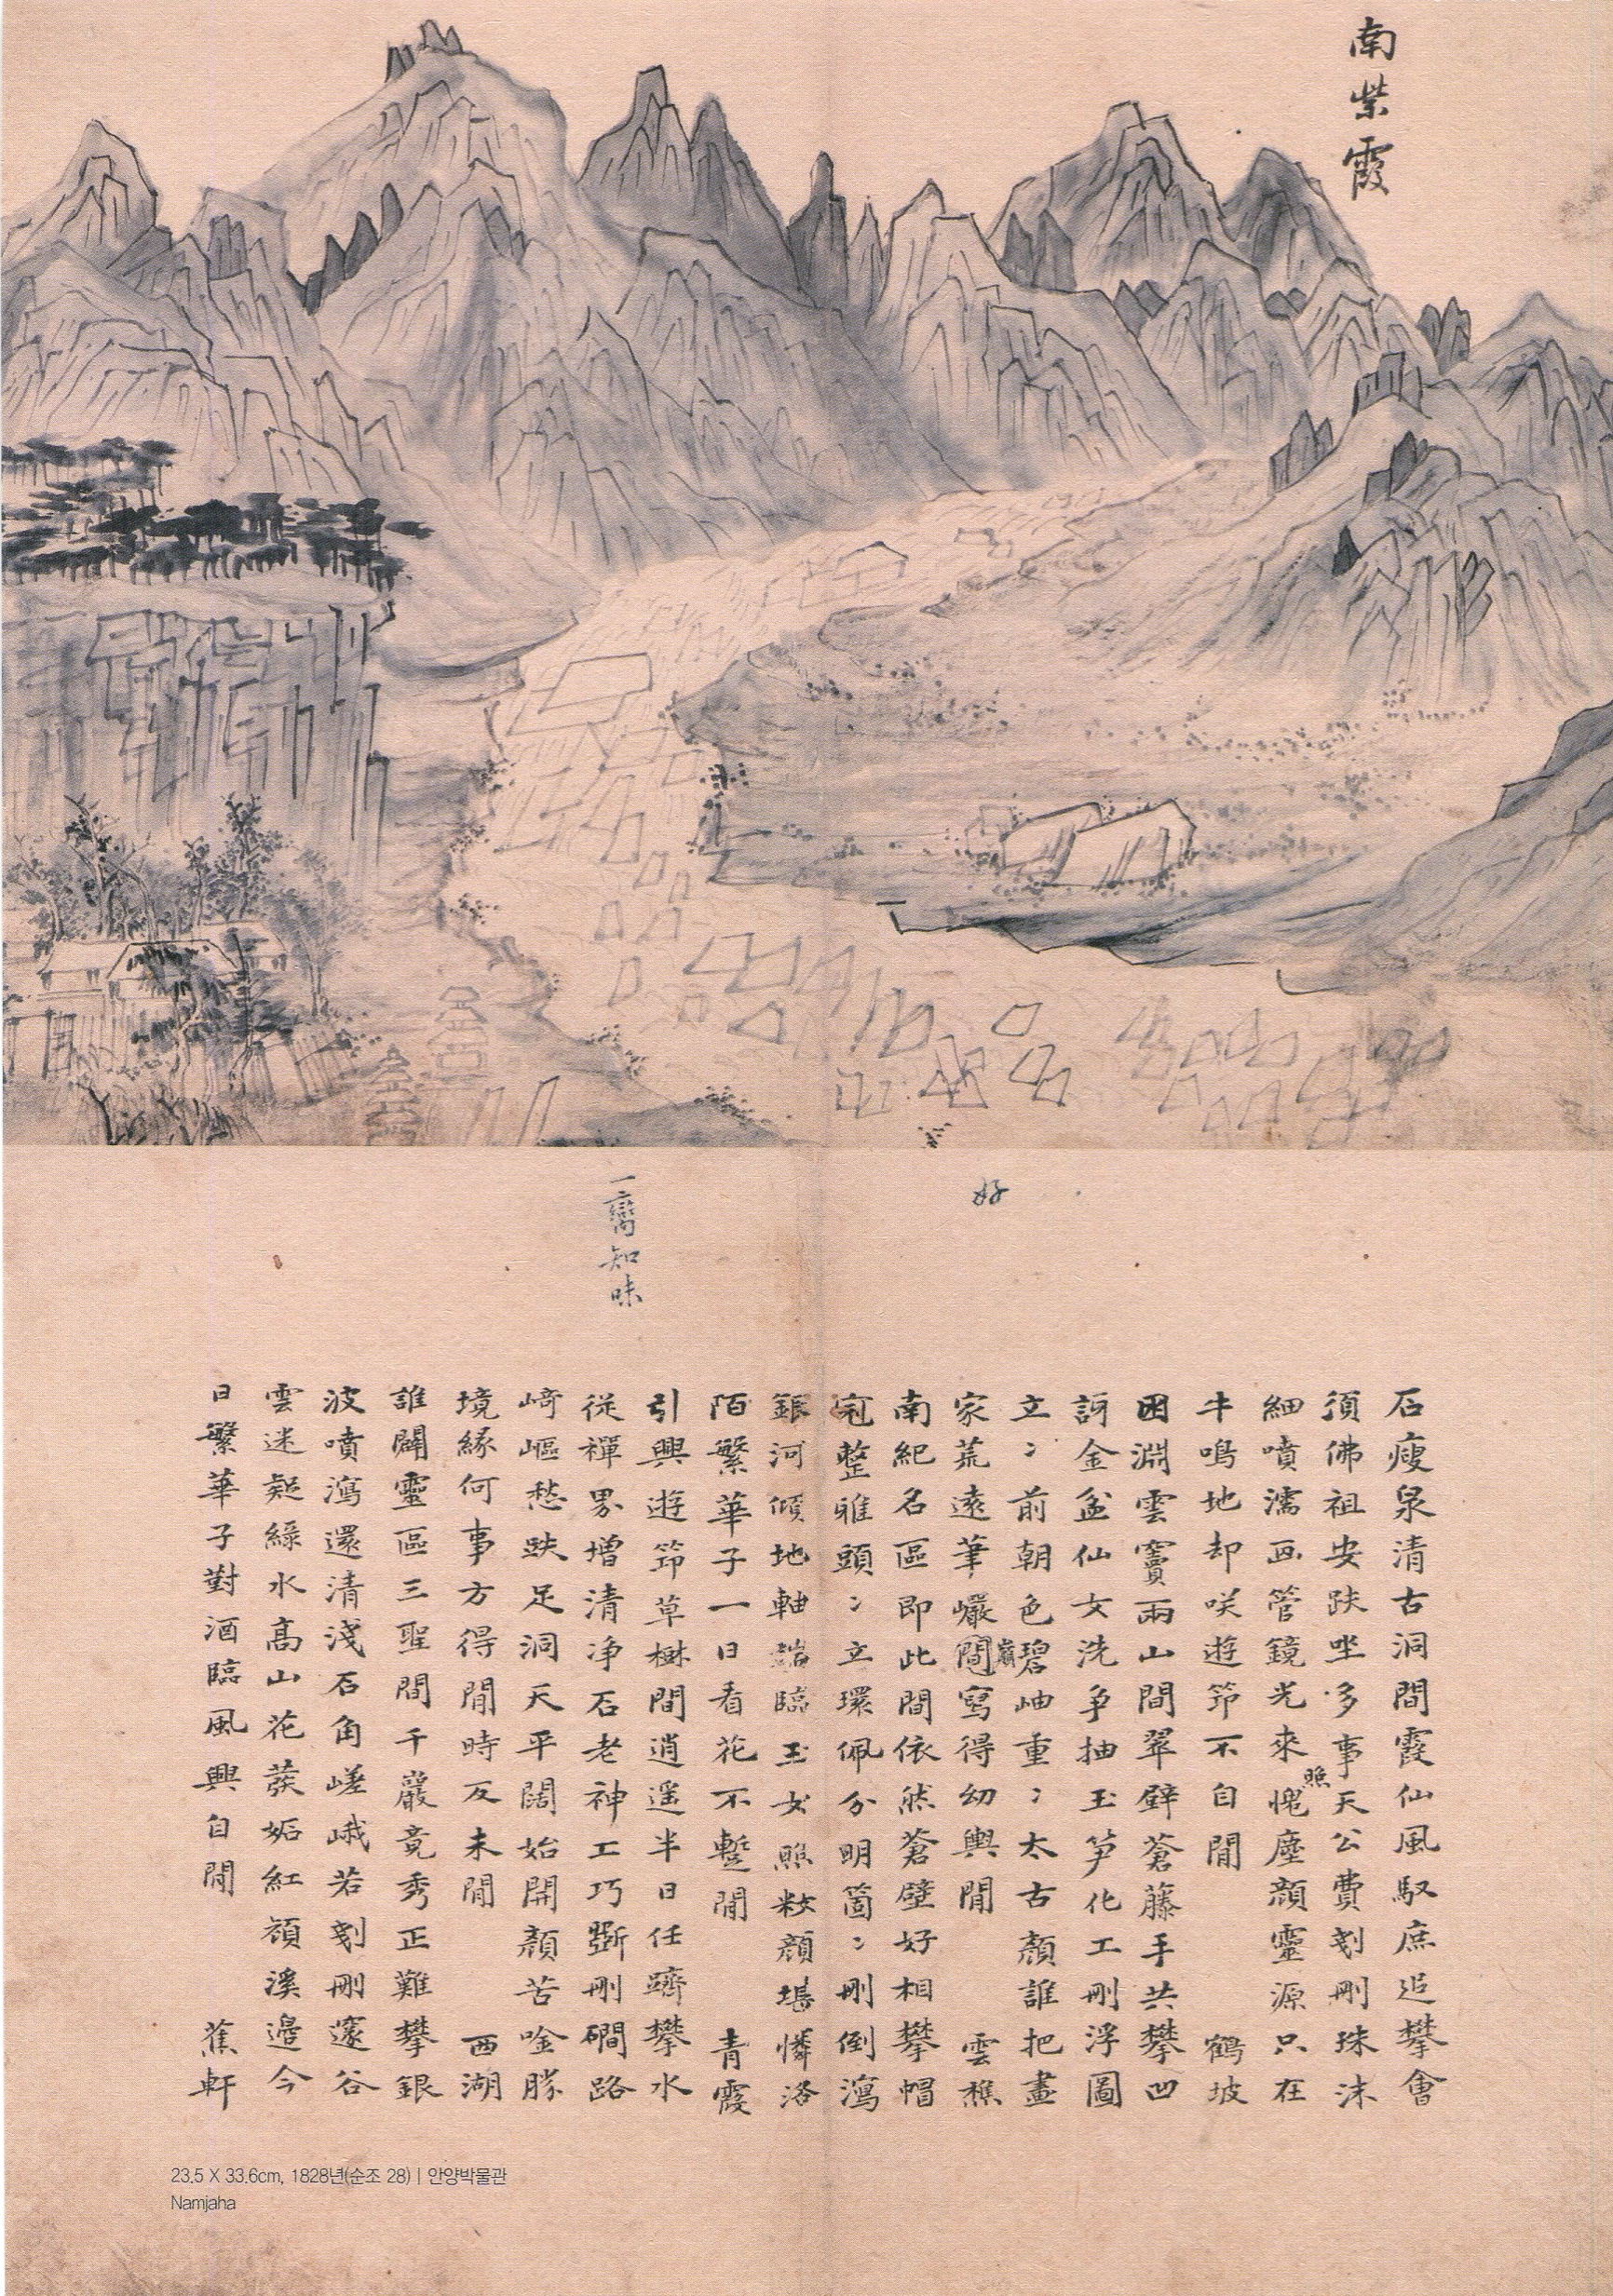 南紫霞
好
一臠知味
石瘦泉清古洞間霞仙風馭庶追攀會
須佛祖安趺坐多事天公費剗刪珠沫
細噴濡画管鏡光來愧塵顔靈源只在
照
牛鳴地却咲遊笻不自閒 鶴坡
淵雲竇兩山間翠壁蒼藤手共攀凹
訝金盆仙女洗争抽玉笋化工刪浮圖
立〻前朝色碧岫重〻太古顔誰把畫
家荒遠筆巖間寫得幼輿閒 雲樵
南紀名區即此間依然蒼壁好相攀帽
冠整雅頭〻立環佩分明箇〻刪倒瀉
銀河傾地軸臨玉女照粧顔堪憐洛
陌繁華子一日看花不蹔閒 青霞
引興遊笻草樹間逍遥半日任躋攀水
従禪界增清净石老神工巧斲刪磵路
崎嶇愁趺足洞天平闊始開顔苦唫勝
境縁何事方得閒時反未閒 西湖
誰闢靈區三聖間千巖竟秀正難攀銀
波噴瀉還清淺石角嵯峨若剗刪邃谷
雲迷疑綠水高山花蔟妬紅顔溪邉今
日繁華子對酒臨風興自閒 蕉軒
23.5 X 33.6cm, 1828년(순조 28) | 안양박물관
Namjaha